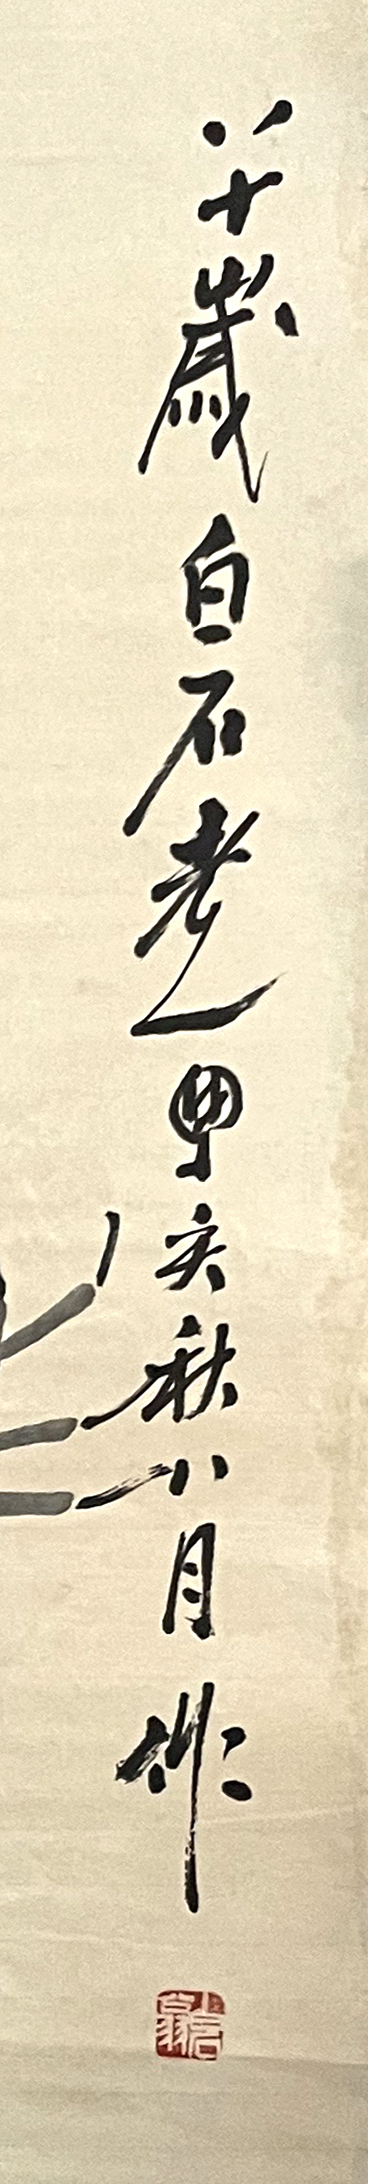 八十歲白石老人甲亥秋八月作
白石翁